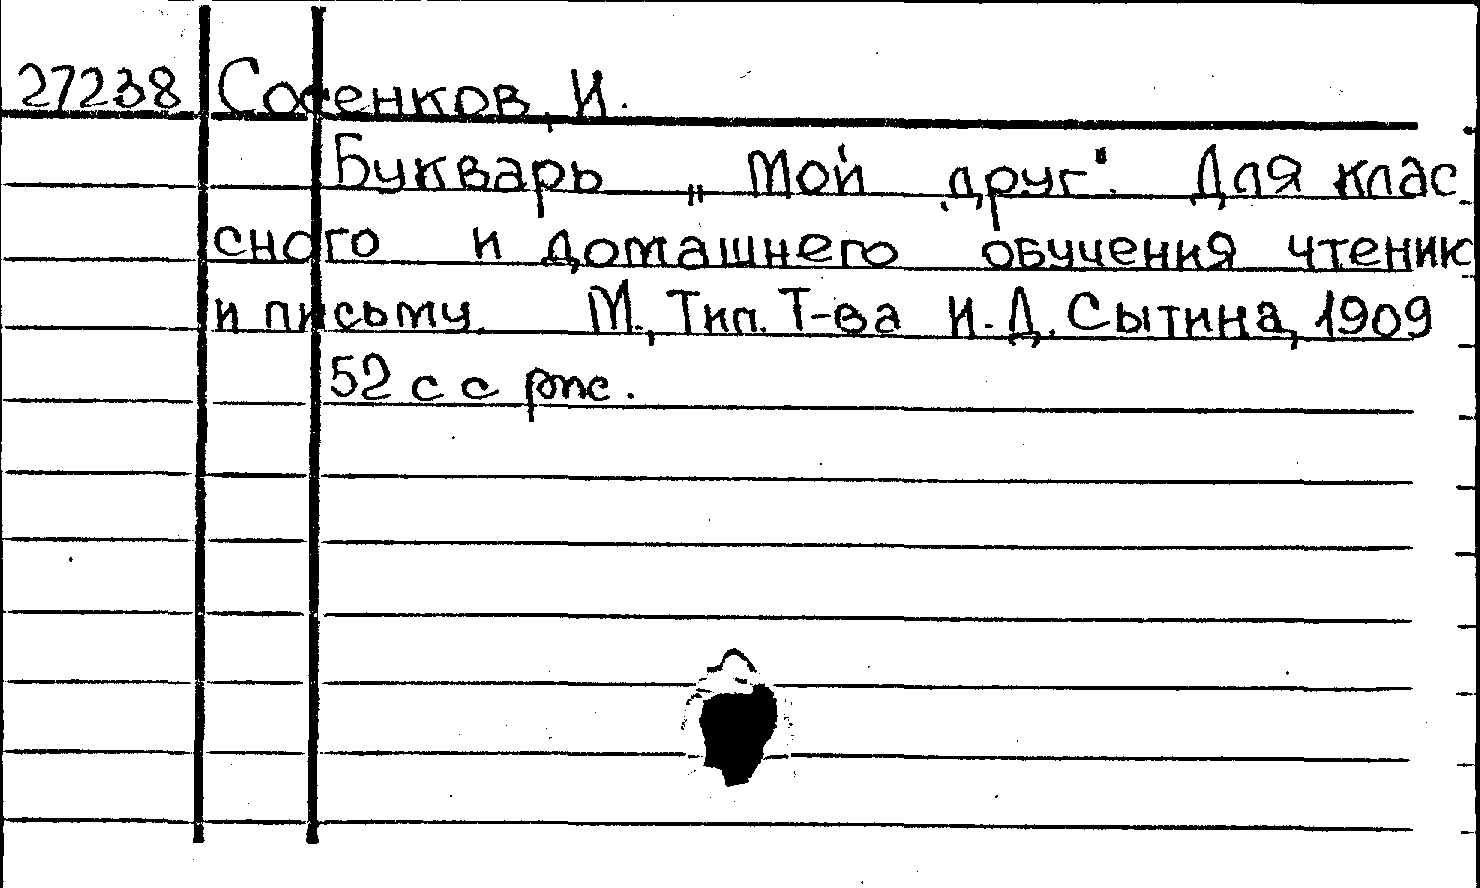 27238 Сосенков, И.
Букварь „Мой друг". Для клас
сного и домашнего обучения чтению
и письму. М., Тип. Т-ва И.Д. Сытина, 1909
52 с с рис.